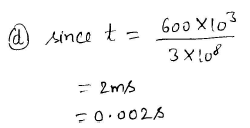 (d) since t = 600 × 10³ / 3 × 10⁸
= 2ms
= 0.002s